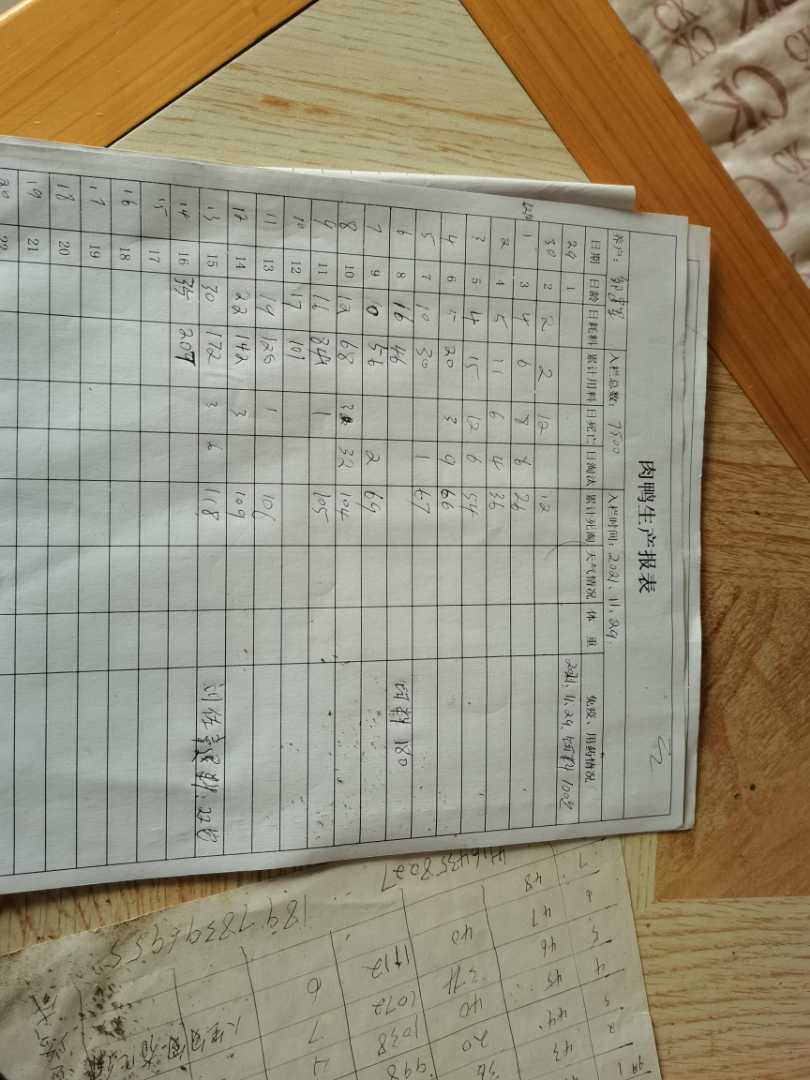 肉鸭生产报表
入栏总数：7500 入栏时间：2021.11.29
日期 日龄 日耗料 累计用料 日死亡 日淘汰 累计死淘 天气情况 体重 免疫、用药情况
29 1 2021.11.29. 100包
30 2 2 2 12 12
1 3 4 6 8 6 26
2 4 5 11 6 4 36
3 5 4 15 12 6 54
4 6 5 20 3 9 66
5 7 10 30 1 67
6 8 16 46 180
7 9 10 56 2 69
8 10 12 68 3 32 104
9 11 16 84 1 105
10 12 17 101
11 13 19 120 1 106
12 14 22 142 3 109
13 15 30 172 3 6 118
14 16 35 207
15 17
16 18
17 19
18 20
19 21
20 22
18978396955
1 43 36 998 4
2 44 20 1038 7
3 45 40 1072 6
4 46 1112
5 47 40
6 48
7